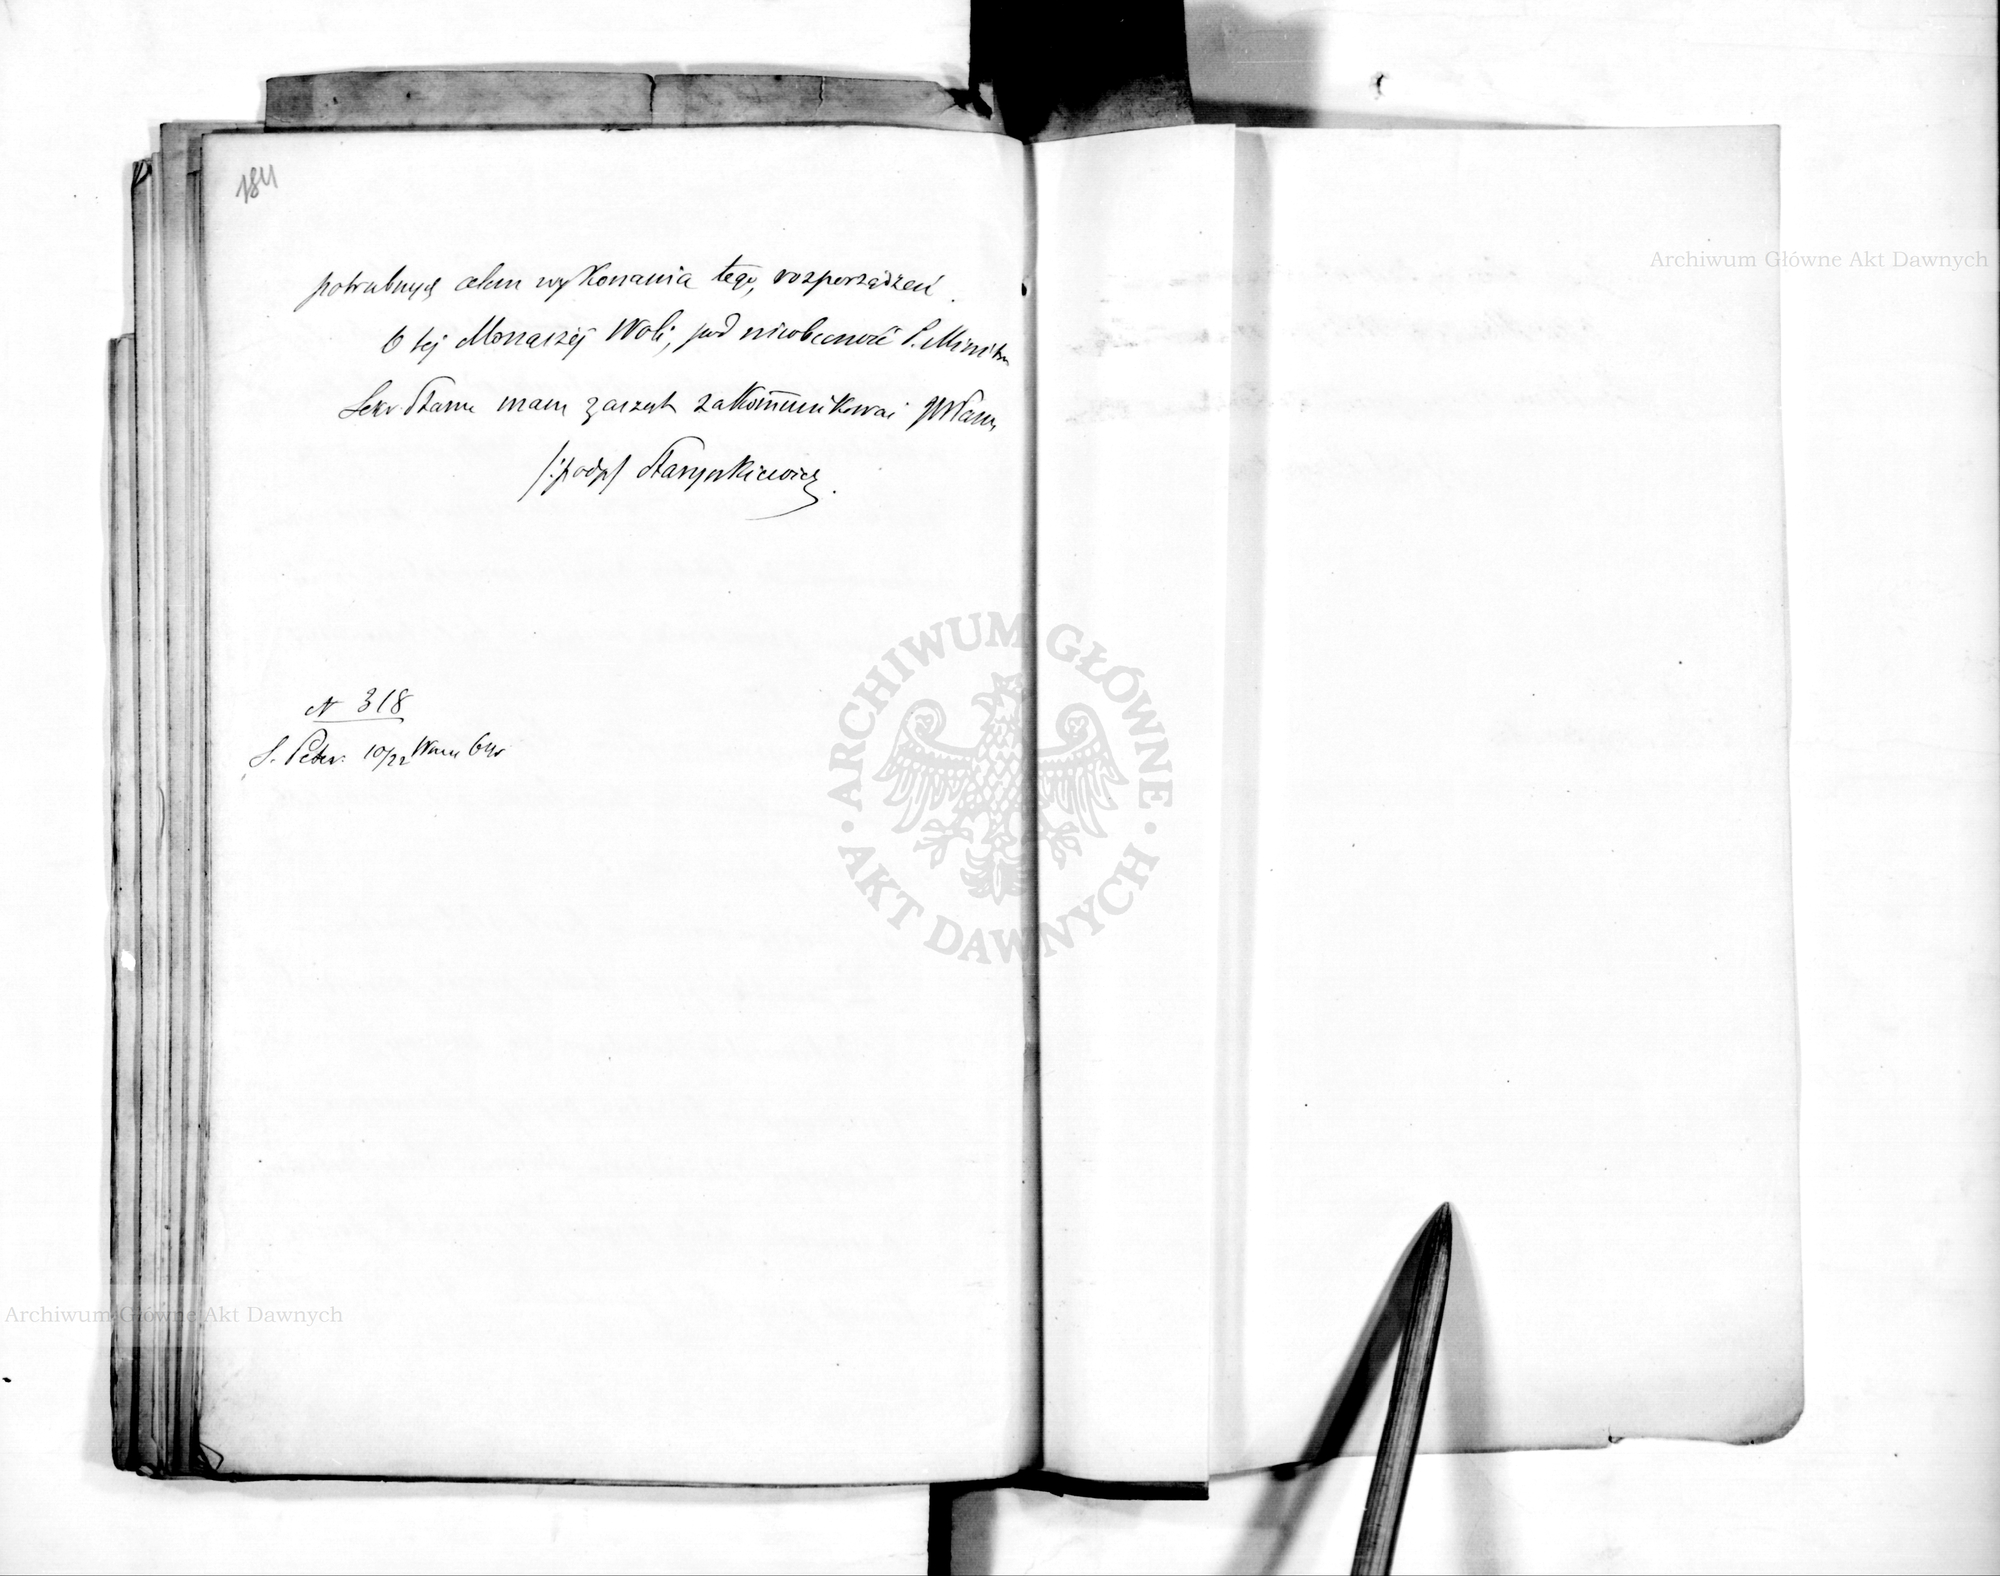 184
potrzebnych celem wykonania tego, rozporządzeń.
O tej Monarszej Woli, pod nieobecność P. Ministra
Sekr. Stanu mam zaszczyt zakommunikować JWPanu
/:podp/ Starynkiewicz.
N 318
S. Peter. 10/22 64r
Archiwum Główne Akt Dawnych
ARCHIWUM GŁÓWNE AKT DAWNYCH
Archiwum Główne Akt Dawnych